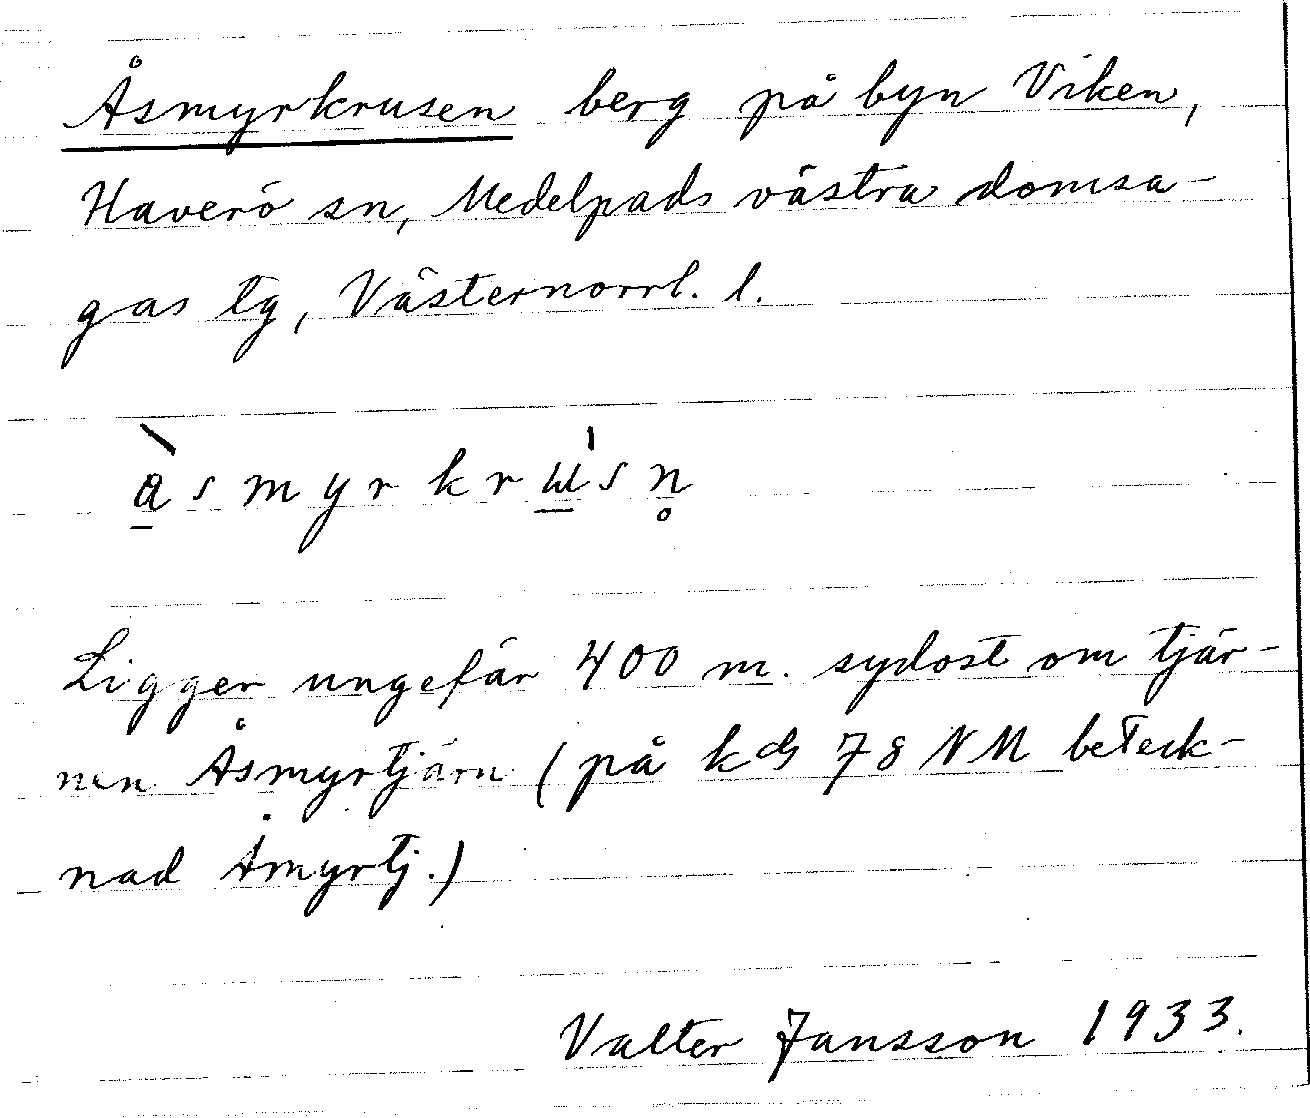 Åsmyrkrusen berg på byn Viken,
Haverö sn, Medelpads västra domsa-
gas tg, Västernorrl. l.
Ligger ungefär 400 m. sydost om tjär-
nen Åsmyrtjärn (på kds 78 NM beteck-
nad Åmyrtj.)
Valter Jansson 1933.